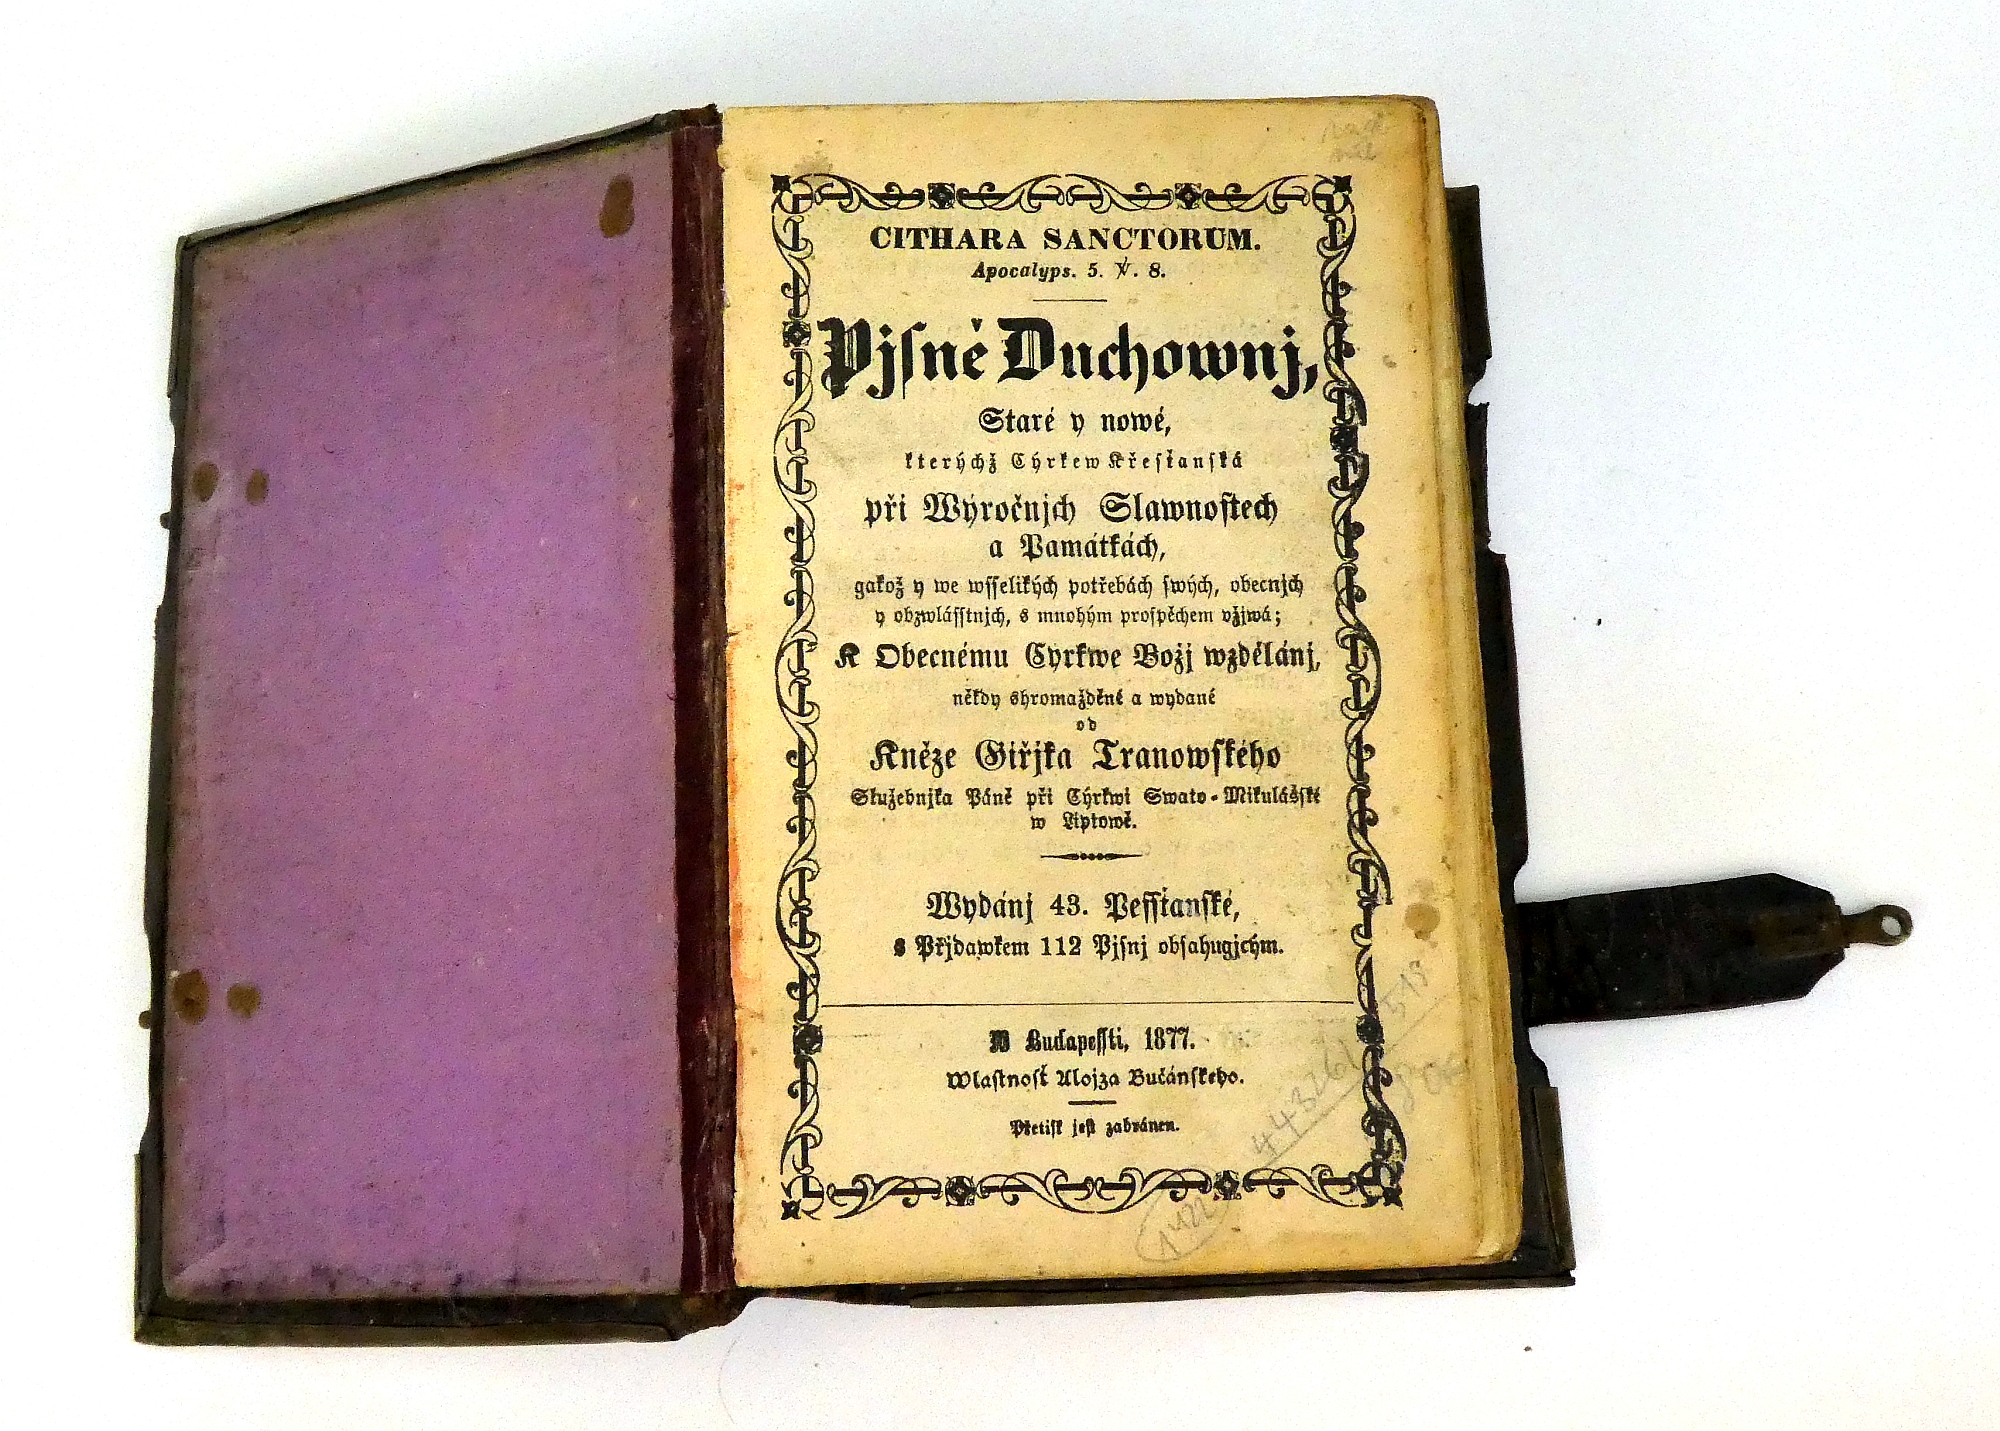 CITHARA SANCTORUM.
Apocalyps. 5. ℣. 8.
Pjſně Duchownj,
Staré y nowé,
kterýchž Cýrkew Křeſťanſká
při Wýročnjch Slawnoſtech
a Památkách,
gakož y we wſſelikých potřebách ſwých, obecnjch
y obzwláſſtnjch, s mnohým proſpěchem vžjwá;
K Obecnému Cyrkwe Božj wzdělánj,
někdy shromažděné a wydané
od
Kněze Giřjka Tranowſkého
Služebnjka Páně při Cýrkwi Swato-Mikulášſké
w Liptowě.
Wydánj 43. Peſſťanſké,
s Přjdawkem 112 Pjſnj obſahugjcým.
W Budapeſſti, 1877.
Wlaſtnoſť Alojza Bučánſkeho.
Přetiſk jeſt zabránen.
443261
1422